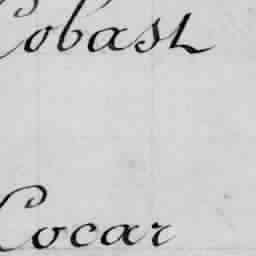 Cobast
Cocar